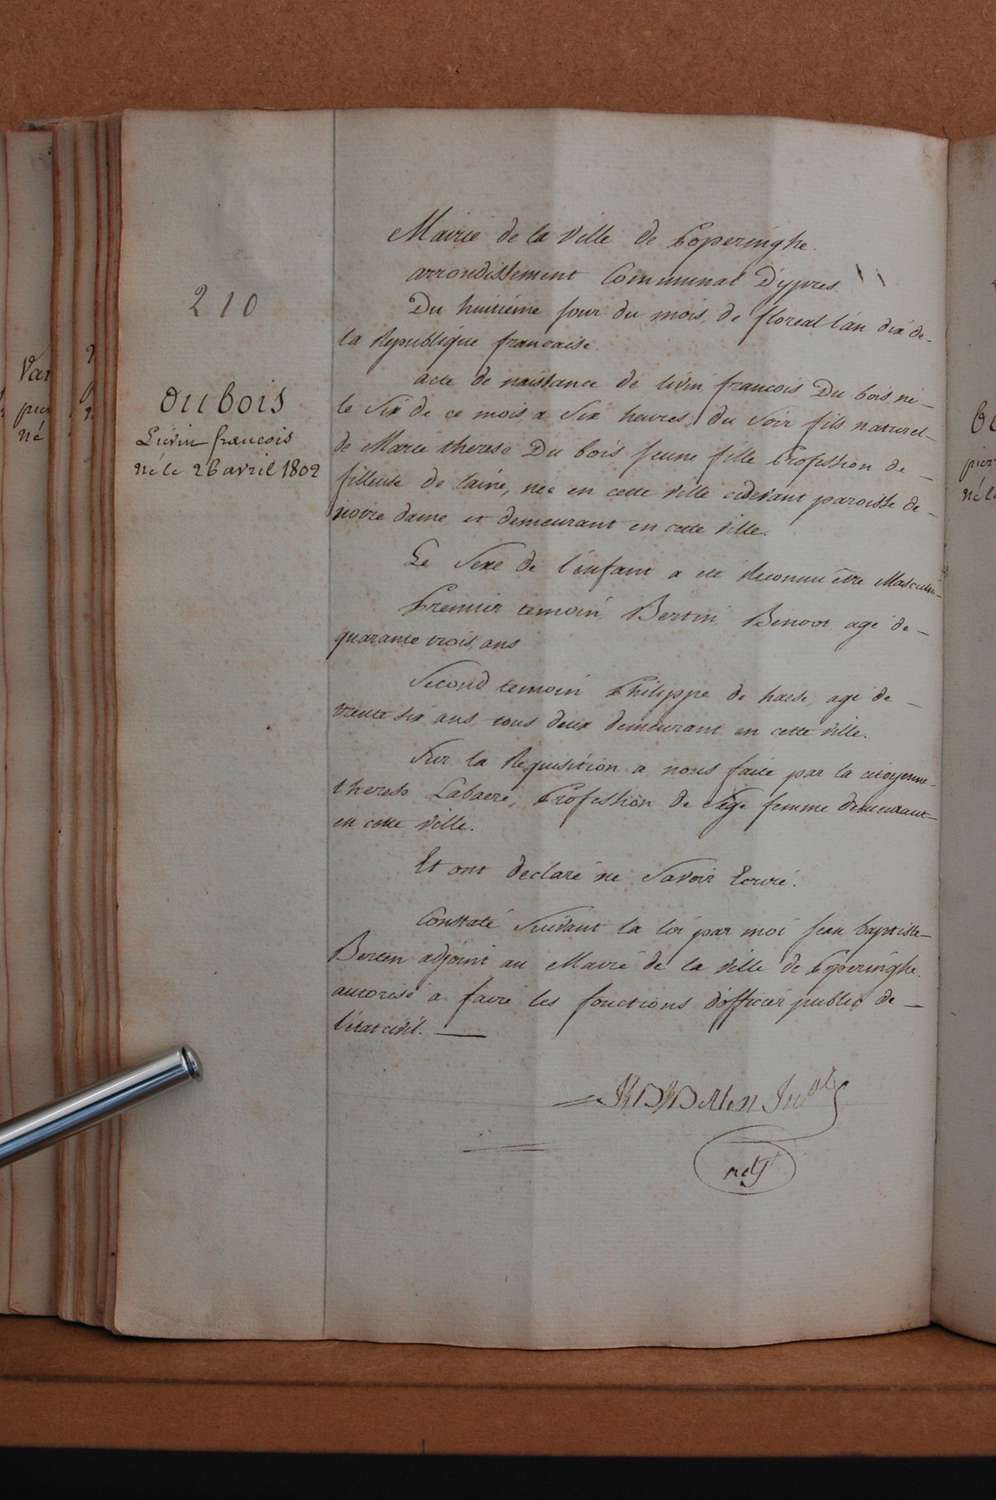 210
Du bois
Liévin françois
né le 26 avril 1802
Mairie de la ville de Poperinghe.
arrondissement Communal D'ypres.
Du huitiéme jour du mois de floreal l'an dix de-
la Republique francaise.
acte de naissance de livin francois Du bois né-
le Six de ce mois, a Six heures, du Soir fils naturel-
de Marie therese Du bois jeune fille Profession de-
filleuse de laine, neé en cette ville cidevant paroisse de-
notre dame et demeurant en cette ville.
Le Sexe de l'enfant a été Reconnu être Masculin-
Premier temoin Bertin Benoot agé de-
quarante trois, ans
Second temoin Philippe de haese, age de-
trente six ans tous deux demeurant en cette ville.
Sur la Requisition a nous faite par la citoyenne-
therese Labaere, Profession de Sage femme demeurant-
en cette ville.
Et ont declaré ne Savoir Ecrire.
Constaté Suivant la loi par moi jean baptiste-
Berten adjoint au Maire de la ville de Poperinghe.
autorisé a faire les fonctions d'officier public de-
l'état civil.
Van
pier
né
pier
né le